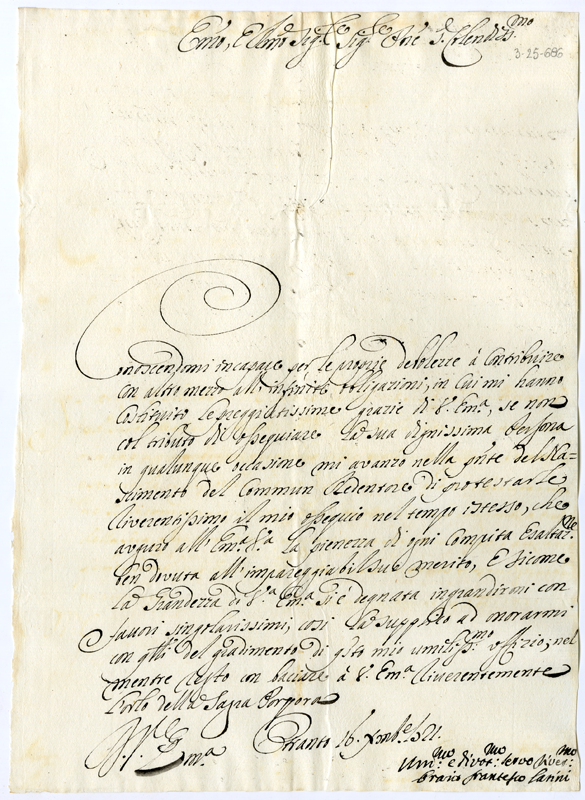 Em̃o, e Rm̃o Sig.re Sig.re Pñe Col.mo
3-25-686
Conoscendomi incapace per le proprie debolezze à Contribuire
con altro mezzo all'infinite obligazioni, in cui mi hanno
Costituito le preggiatissime grazie di V. Em.a, se non
col tributo di ossequiare la sua dignissima Persona
in qualunque occasione mi avanzo nella pñte del Na=
scimento del Commun Redentore di protestarle
riverentissimo il mio ossequio nel tempo istesso, che
auguro all'Em.a V.a la pienezza di ogni Compita Esaltaz.ne
ben dovuta all'impareggiabil suo merito, E sicome
la Grandezza di V.a Em.a si è degnata ingrandirmi con
favori singolarissimi, così la supplico ad onorarmi
con del gradimento di q̃sto mio umiliss.mo offizio; nel
mentre resto con baciare à V. Em.a riverentemente
l'orlo della Sagra Porpora
V. Em.a
Otranto 16. Xmbre 721.
Um.mo e divot.mo servo river.mo
Orazio Francesco